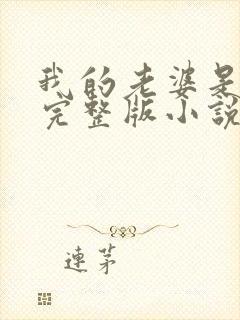 我的老婆是
完整版小說
連茅